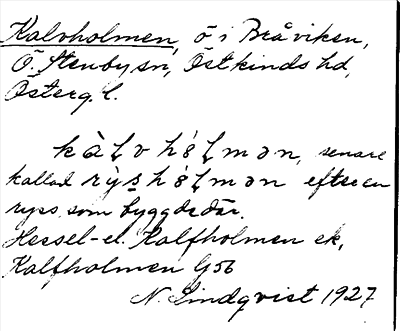 Kalvholmen, ö i Bråviken,
Ö. Stenby sn, Östkinds hd,
Österg. l.
kàlv hólmən, senare
kallad rỳs hólmən efter en
ryss, som byggde där.
Hessel- el. Kalfholmen ek,
Kalfholmen G56
N. Lindqvist 1927